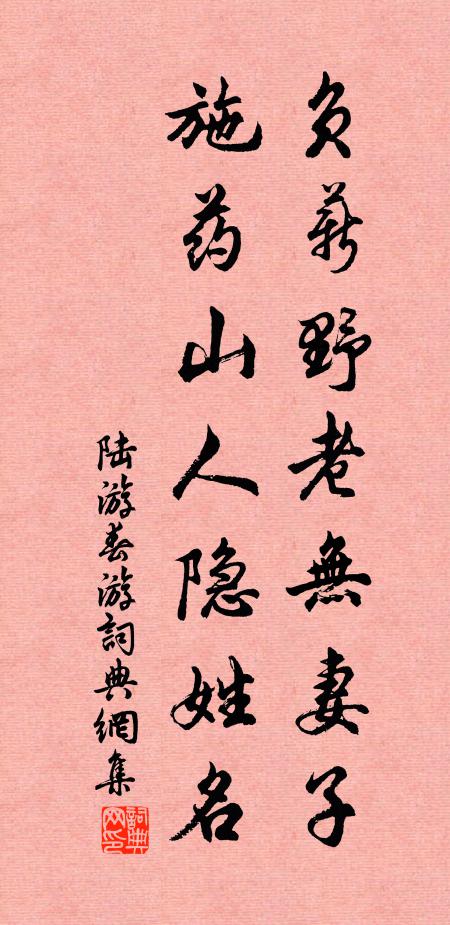 负薪野老無妻子
施药山人隐姓名
陆游春游詞典網集
詞典网印